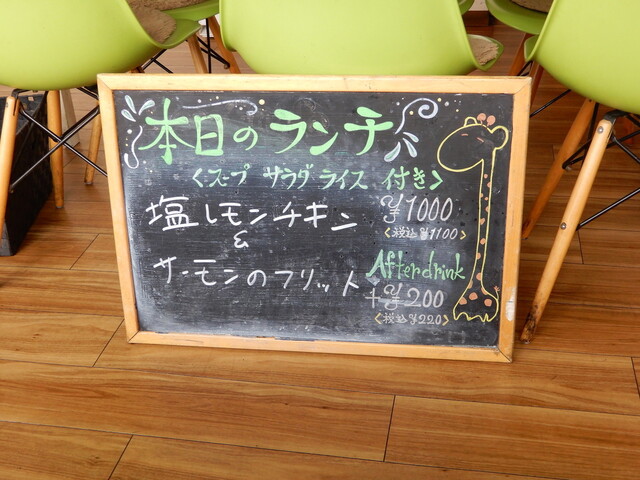 本日のランチ
<スープ サラダ ライス 付き>
塩レモンチキン
&
サーモンのフリット
¥1000
<税込¥1100>
After drink
+¥200
<税込¥220>